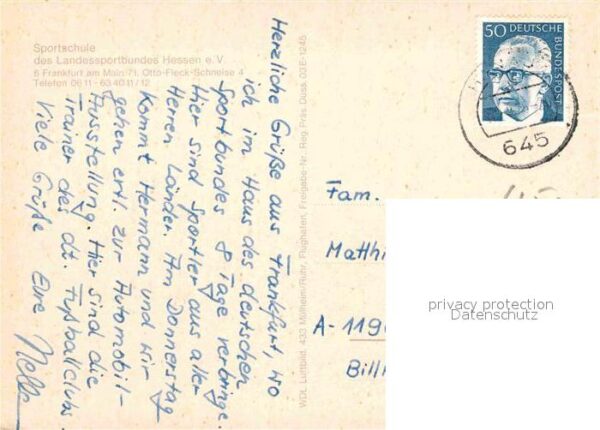 Sportschule
des Landessportbundes Hessen e.V.
6 Frankfurt am Main 71, Otto-Fleck-Schneise 4
Telefon 06 11 - 63 40 11 / 12
Herzliche Grüße aus Frankfurt, wo
ich im Haus des deutschen
Sportbundes 8 Tage verbringe.
Hier sind Sportler aus aller
Herren Länder. Am Donnerstag
kommt Hermann und wir
gehen evtl. zur Automobil-
Ausstellung. Hier sind die
Trainer des dt. Fußballclubs.
Viele Grüße Eure Nelly
WDL Luftbild, 433 Mülheim/Ruhr, Flughafen, Freigabe-Nr. Reg. Präs. Düss. 03 E-1245
50 DEUTSCHE
BUNDESPOST
645
Fam.
Matthi
A-119
Bill
privacy protection
Datenschutz